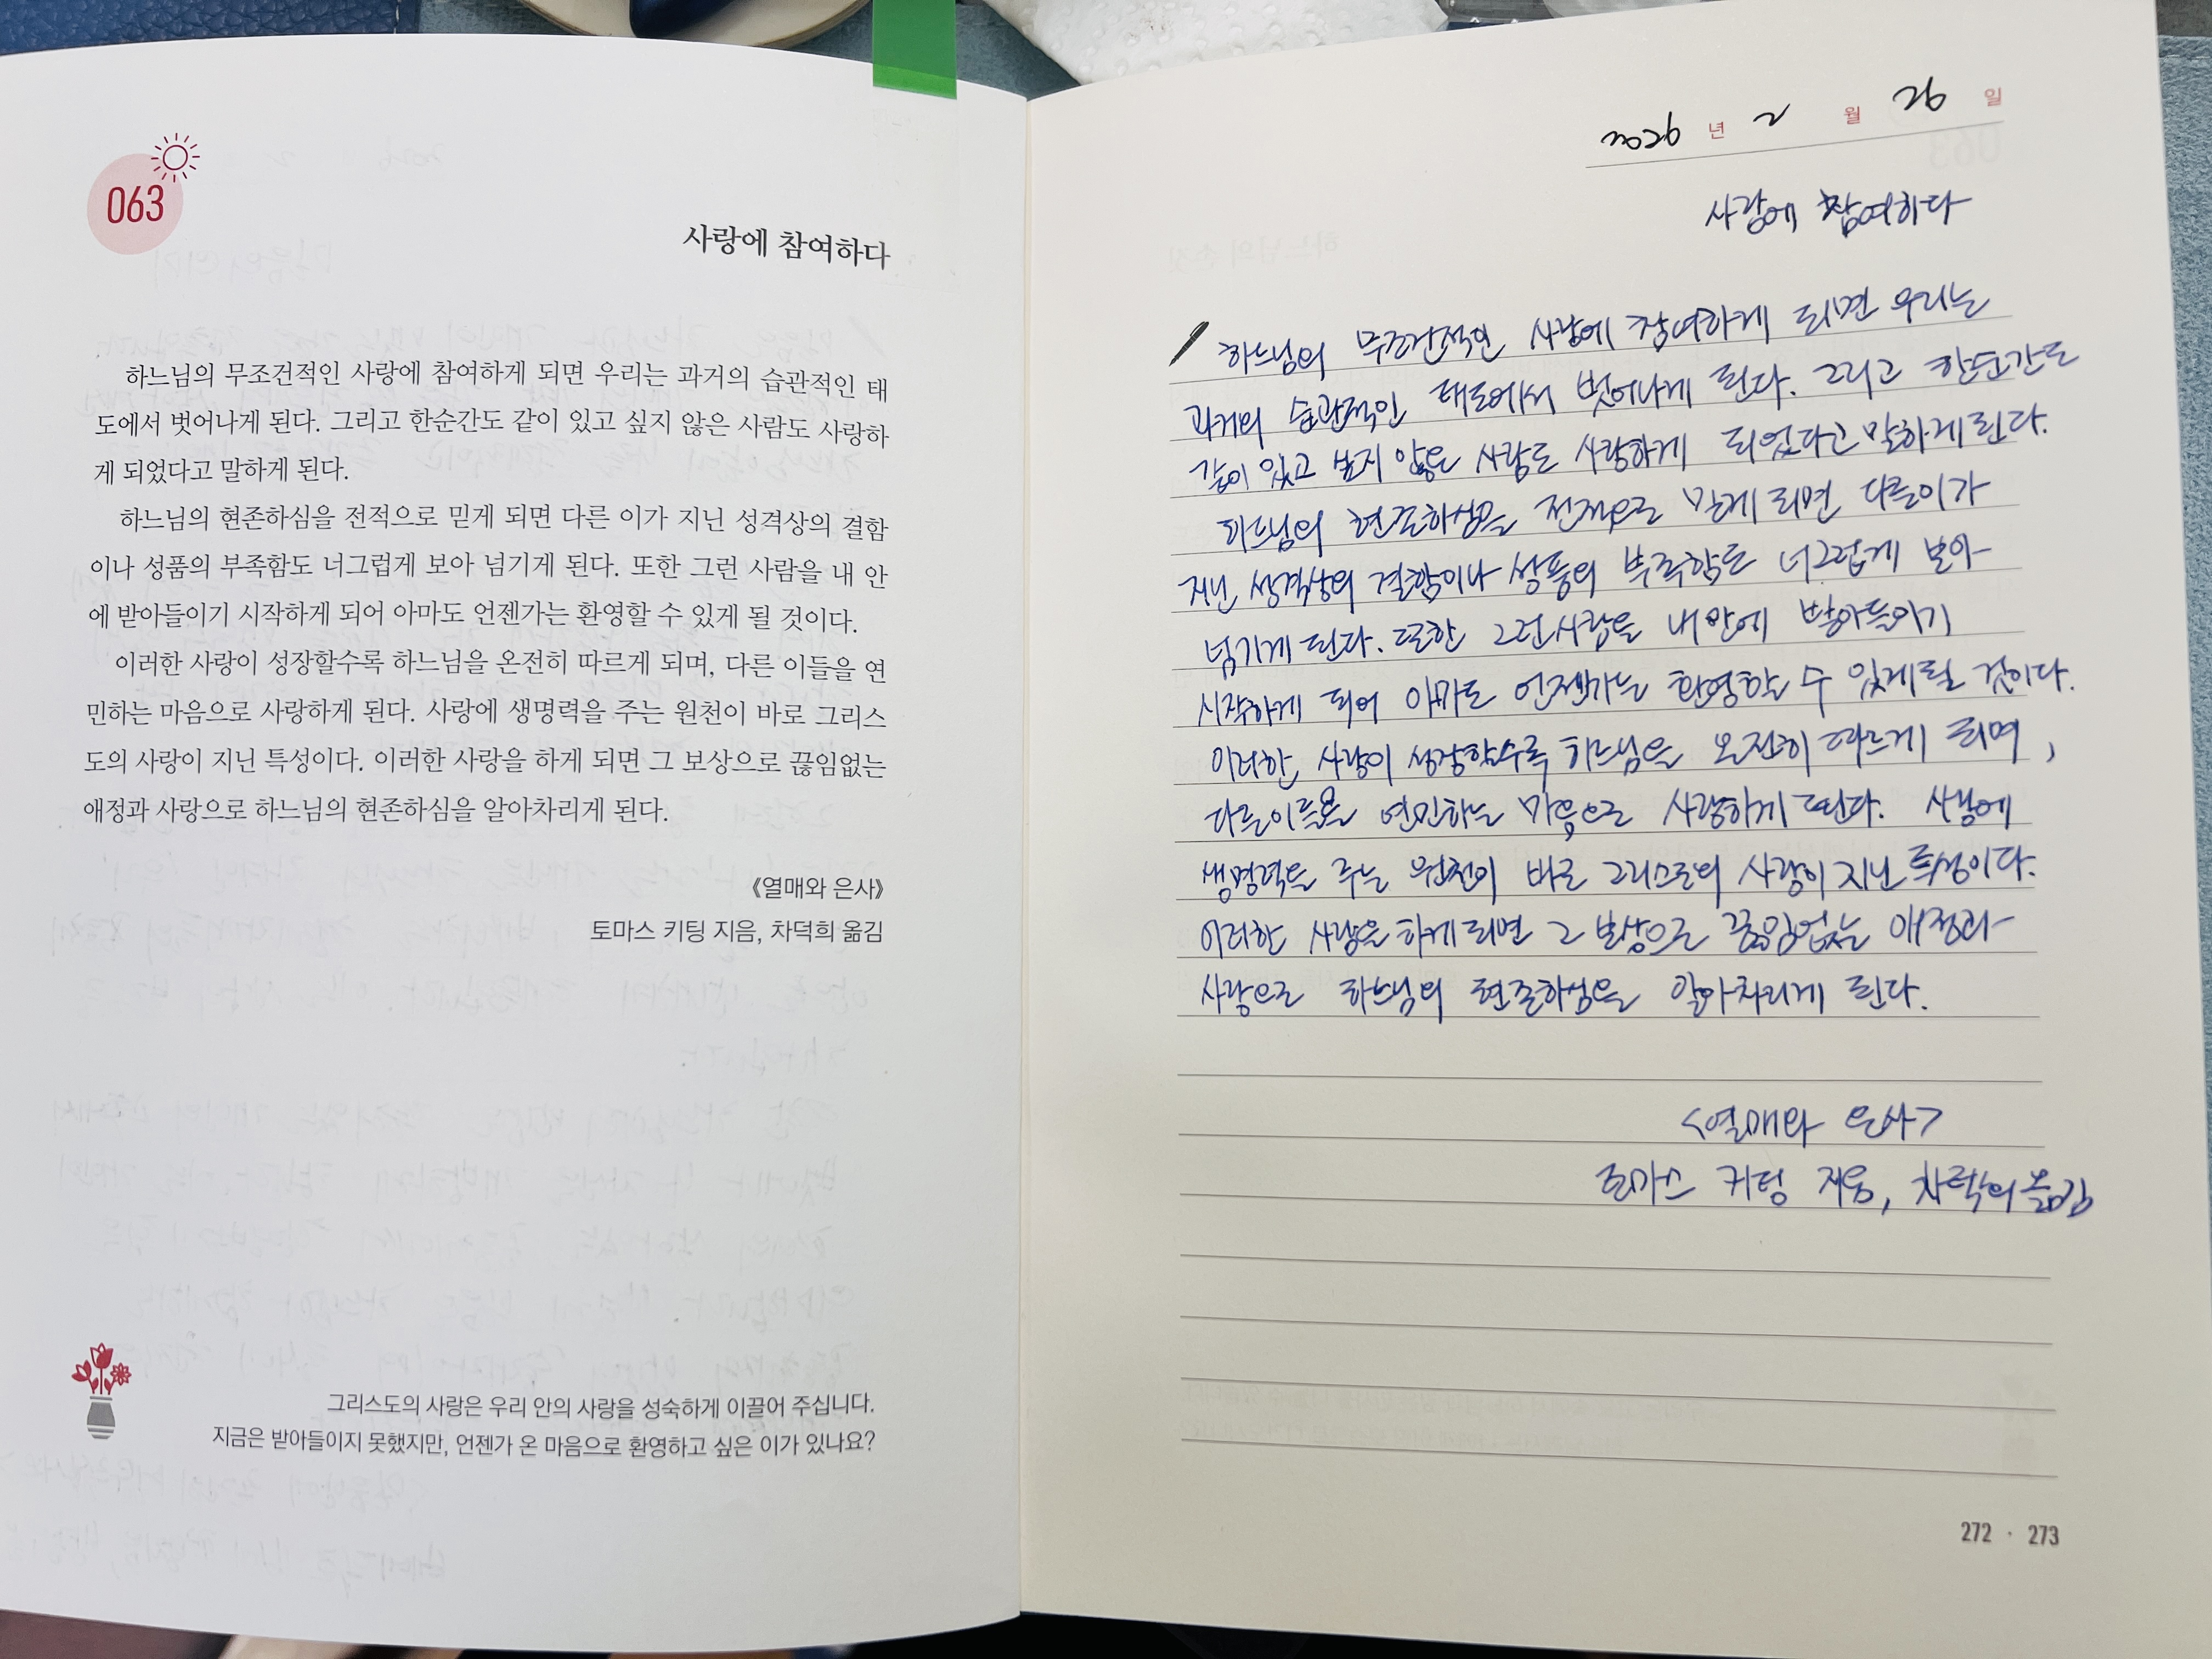 063
사랑에 참여하다
하느님의 무조건적인 사랑에 참여하게 되면 우리는 과거의 습관적인 태
도에서 벗어나게 된다. 그리고 한순간도 같이 있고 싶지 않은 사람도 사랑하
게 되었다고 말하게 된다.
하느님의 현존하심을 전적으로 믿게 되면 다른 이가 지닌 성격상의 결함
이나 성품의 부족함도 너그럽게 보아 넘기게 된다. 또한 그런 사람을 내 안
에 받아들이기 시작하게 되어 아마도 언젠가는 환영할 수 있게 될 것이다.
이러한 사랑이 성장할수록 하느님을 온전히 따르게 되며, 다른 이들을 연
민하는 마음으로 사랑하게 된다. 사랑에 생명력을 주는 원천이 바로 그리스
도의 사랑이 지닌 특성이다. 이러한 사랑을 하게 되면 그 보상으로 끊임없는
애정과 사랑으로 하느님의 현존하심을 알아차리게 된다.
《열매와 은사》
토마스 키팅 지음, 차덕희 옮김
그리스도의 사랑은 우리 안의 사랑을 성숙하게 이끌어 주십니다.
지금은 받아들이지 못했지만, 언젠가 온 마음으로 환영하고 싶은 이가 있나요?
2026 년 2 월 26 일
사랑에 참여하다
하느님의 무조건적인 사랑에 참여하게 되면 우리는
과거의 습관적인 태도에서 벗어나게 된다. 그리고 한순간도
같이 있고 싶지 않은 사람도 사랑하게 되었다고 말하게 된다.
하느님의 현존하심을 전적으로 믿게 되면 다른이가
지닌 성격상의 결함이나 성품의 부족함도 너그럽게 보아
넘기게 된다. 또한 그런 사람을 내 안에 받아들이기
시작하게 되어 아마도 언젠가는 환영할 수 있게 될 것이다.
이러한 사랑이 성장할수록 하느님을 온전히 따르게 되며,
다른이들을 연민하는 마음으로 사랑하게 된다. 사랑에
생명력을 주는 원천이 바로 그리스도의 사랑이 지닌 특성이다.
이러한 사랑을 하게 되면 그 보상으로 끊임없는 애정과
사랑으로 하느님의 현존하심을 알아차리게 된다.
<열매와 은사>
토마스 키팅 지음, 차덕희 옮김
272 · 273